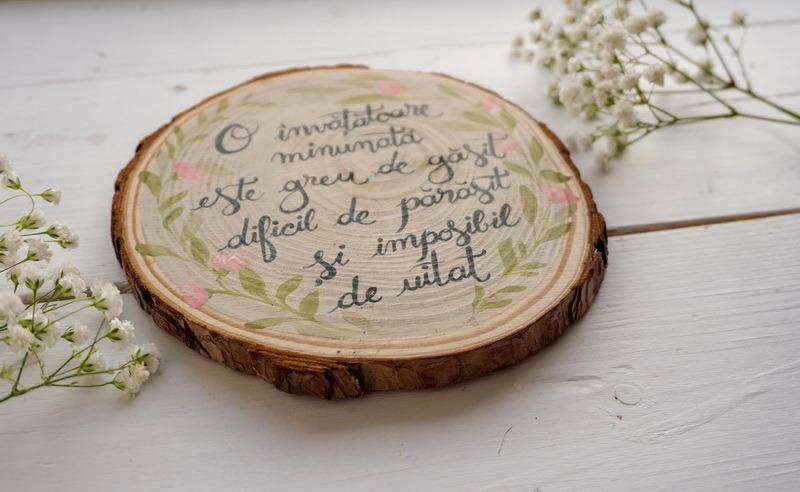 O învățătoare
minunată
este greu de găsit
dificil de părăsit
și imposibil
de uitat